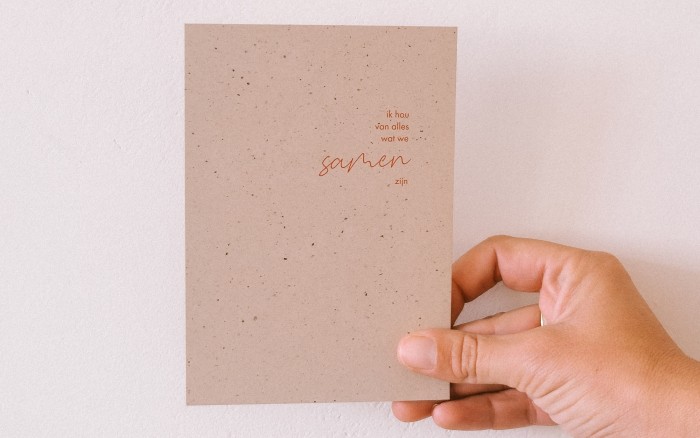 ik hou
van alles
wat we
samen
zijn